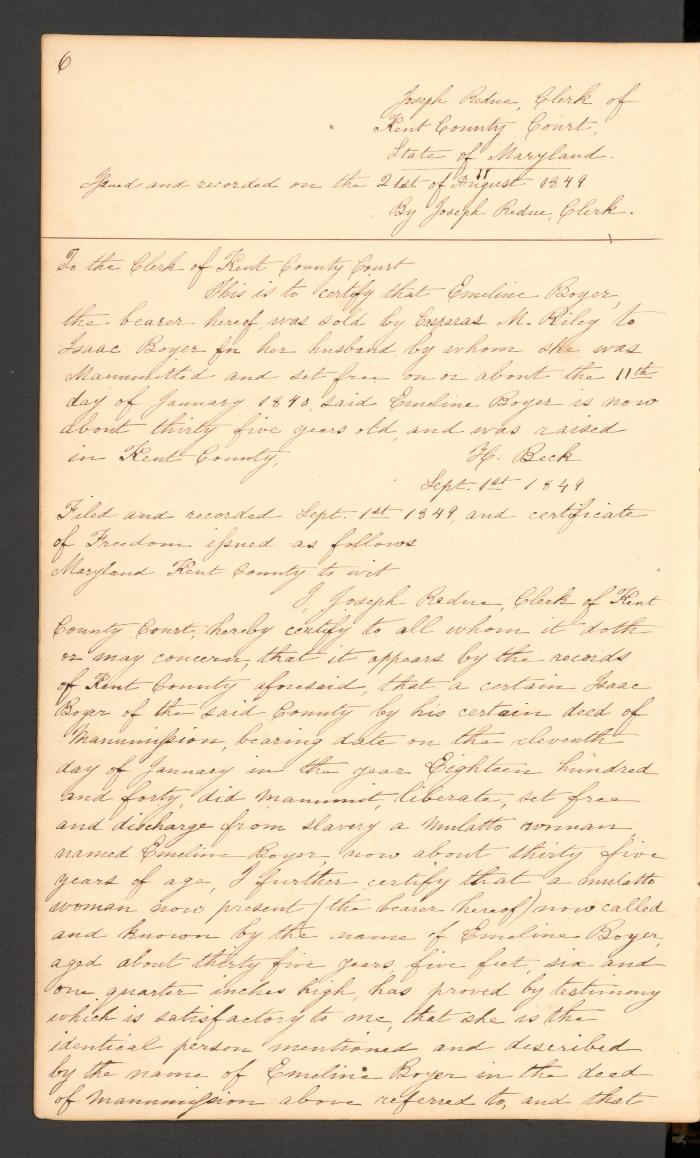 6
Joseph Redue, Clerk of
Kent County Court,
State of Maryland.
Issued and recorded on the 21st of August 1849
By Joseph Redue, Clerk.
To the Clerk of Kent County Court
This is to certify that Emeline Boyer,
the bearer hereof, was sold by Casparas M. Riley to
Isaac Boyer her husband by whom she was
Manumitted and set free on or about the 11th
day of January 1840, said Emeline Boyer is now
about thirty five years old, and was raised
in Kent County,
H. Beck
Sept. 1st 1849
Filed and recorded Sept. 1st 1849, and certificate
of Freedom issued as follows
Maryland Kent County to wit
I, Joseph Redue, Clerk of Kent
County Court, hereby certify to all whom it doth
or may concern, that it appears by the records
of Kent County aforesaid, that a certain Isaac
Boyer of the said County by his certain deed of
Manumission, bearing date on the eleventh
day of January in the year Eighteen hundred
and forty, did manumit, liberate, set free
and discharge from slavery a mulatto woman
named Emeline Boyer, now about thirty five
years of age, I further certify that a mulatto
woman now present (the bearer hereof) now called
and known by the name of Emeline Boyer,
aged about thirty five years, five feet, six and
one quarter inches high, has proved by testimony
which is satisfactory to me, that she is the
identical person mentioned and described
by the name of Emeline Boyer in the deed
of manumission above referred to, and that